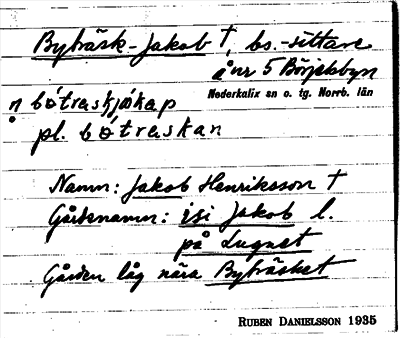 Byträsk-Jakob †, bs.-sittare
å nr 5 Börjelsbyn
Nederkalix sn o. tg. Norrb. län
n bótraskjákap
pl. bótraskan
Namn: Jakob Henriksson †
Gårdsnamn: isi Jakob l.
på Lugnet
Gården låg nära Byträsket
RUBEN DANIELSSON 1935